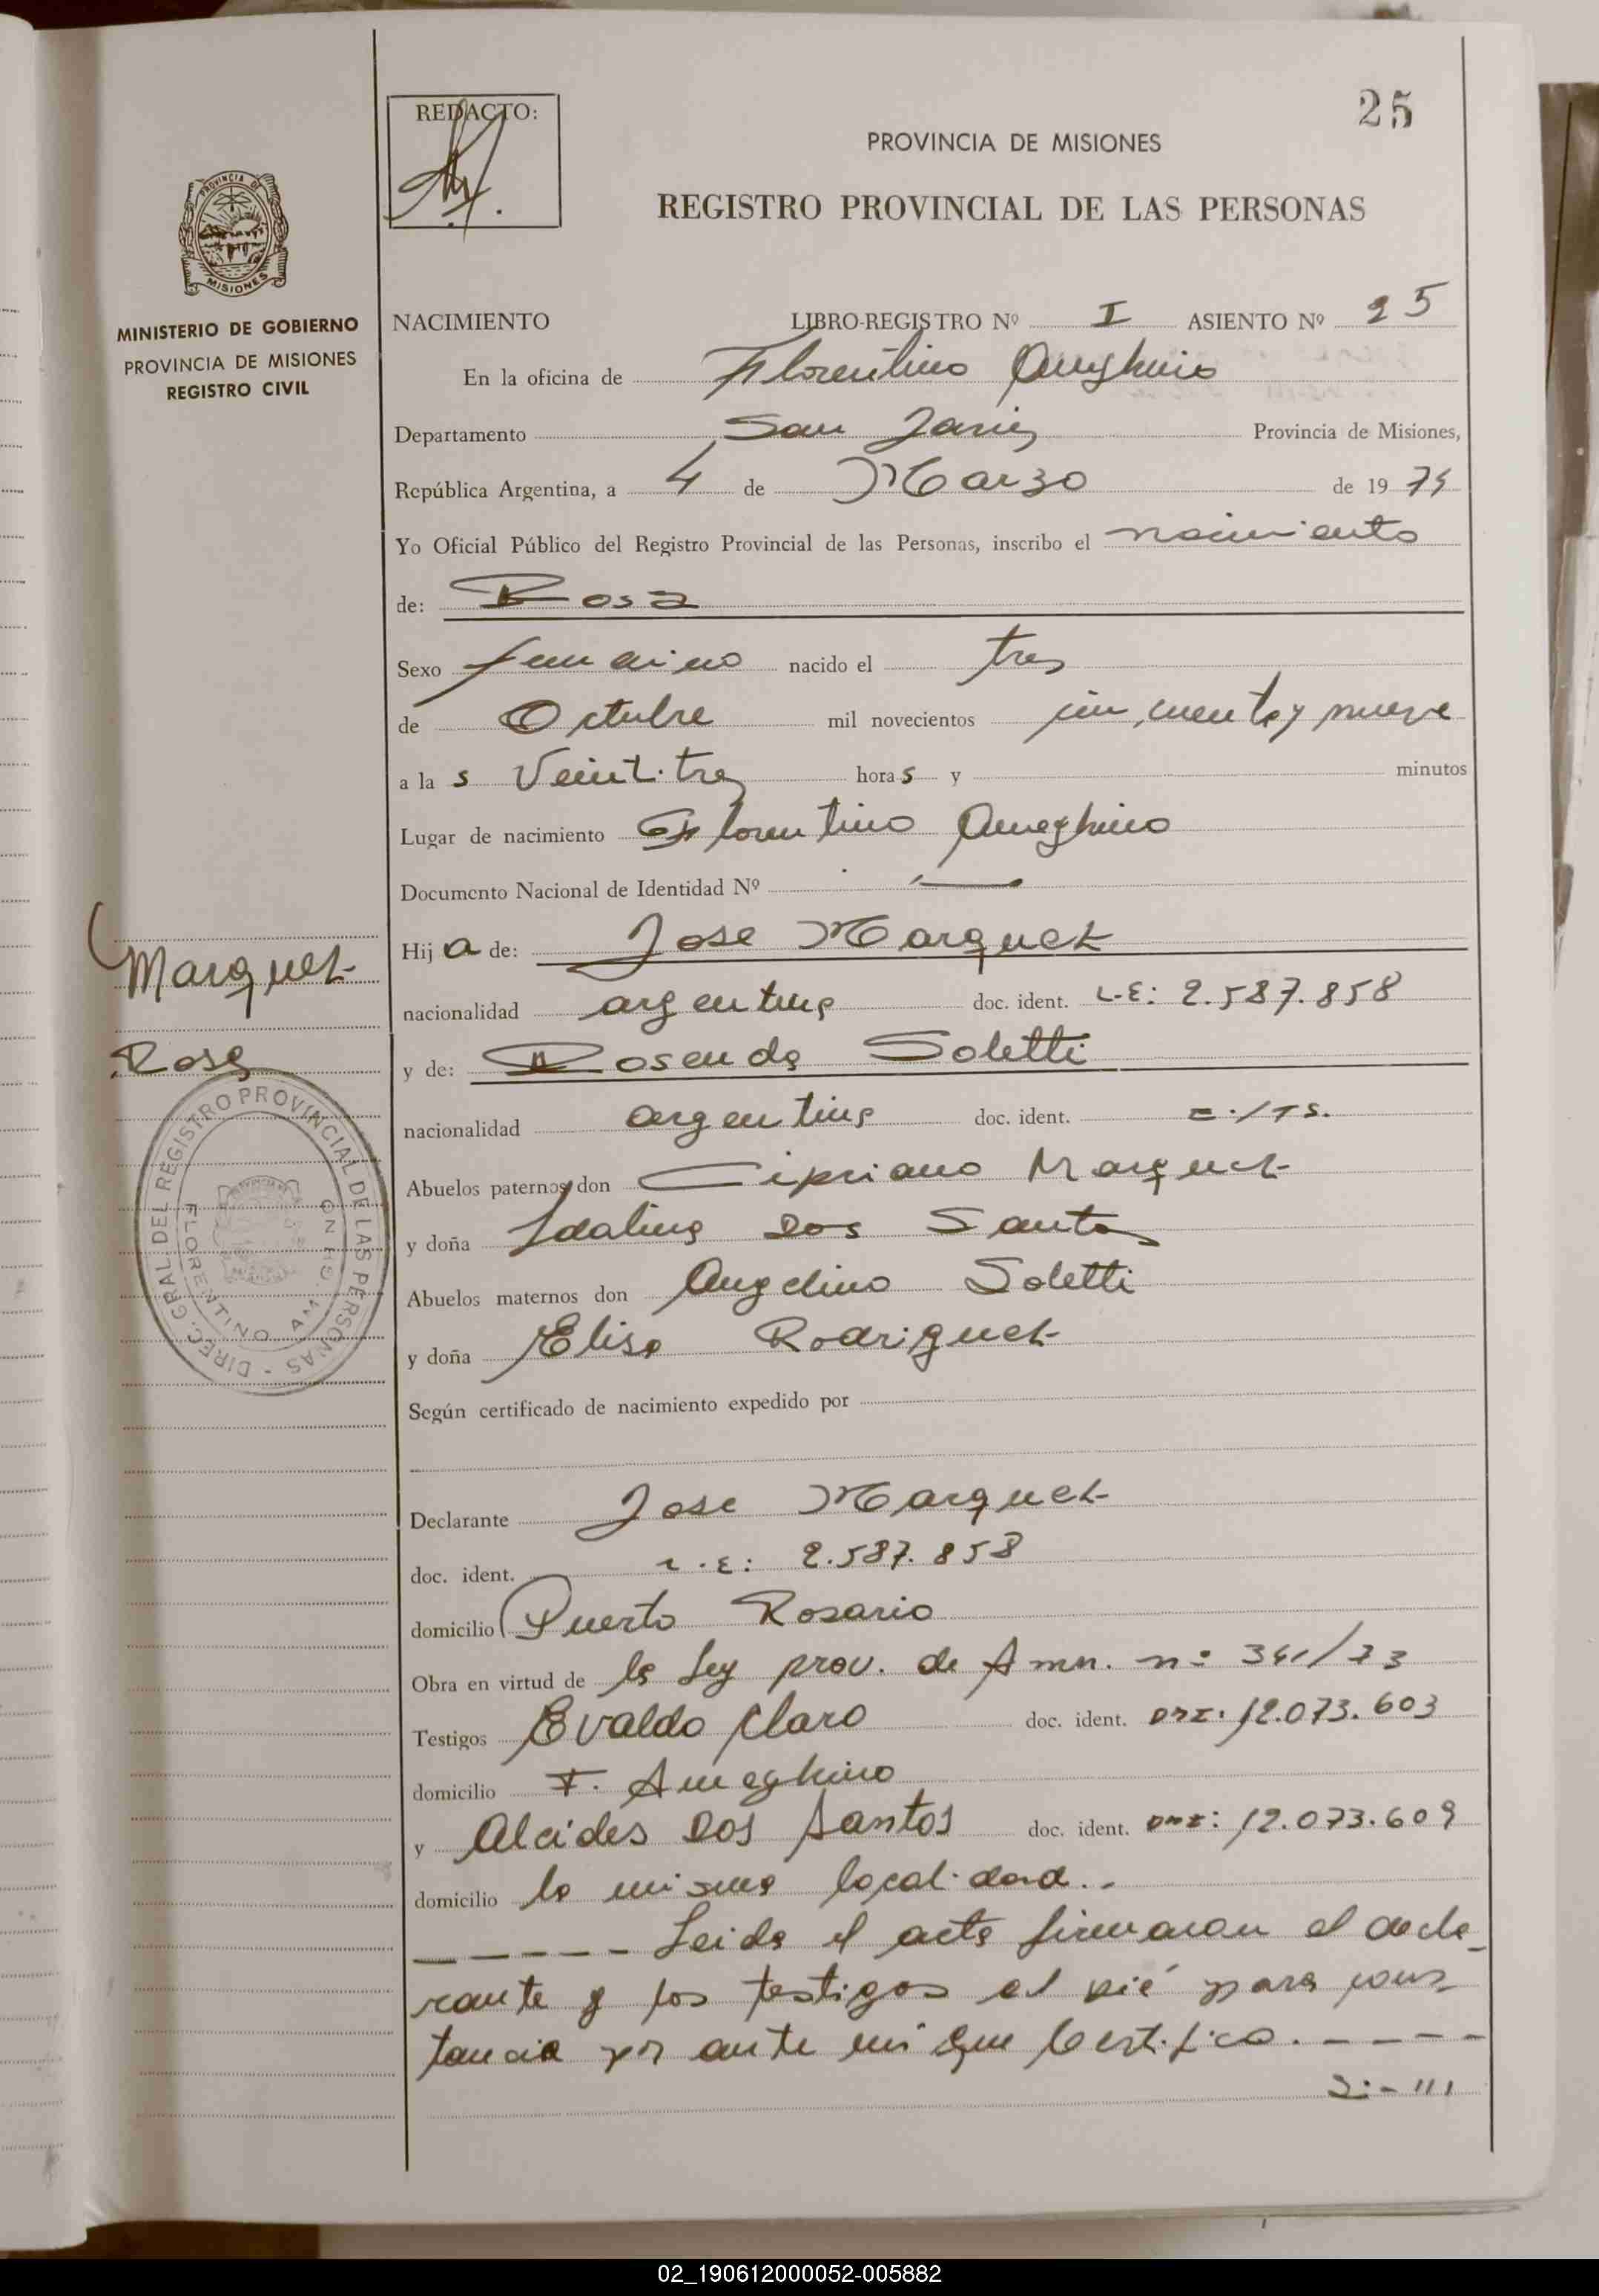 25
REDACTO:
PROVINCIA DE MISIONES
REGISTRO PROVINCIAL DE LAS PERSONAS
PROVINCIA DE
MISIONES
MINISTERIO DE GOBIERNO
PROVINCIA DE MISIONES
REGISTRO CIVIL
NACIMIENTO LIBRO-REGISTRO Nº I ASIENTO Nº 25
En la oficina de Florentino Ameghino
Departamento San Javier Provincia de Misiones,
República Argentina, a 4 de Marzo de 1974
Yo Oficial Público del Registro Provincial de las Personas, inscribo el nacimiento
de: Rosa
Sexo femenino nacido el tres
de Octubre mil novecientos cincuenta y nueve
a las Veintitres horas y minutos
Lugar de nacimiento Florentino Ameghino
Documento Nacional de Identidad Nº —
Hija de: Jose Marquez
nacionalidad argentina doc. ident. L.E: 2.587.858
y de: Rosenda Soletti
nacionalidad argentina doc. ident.
Abuelos paternos don Cipriano Marquez
y doña Idalina Dos Santos
Abuelos maternos don Angelino Soletti
y doña Elisa Rodriguez
Según certificado de nacimiento expedido por
Declarante Jose Marquez
doc. ident. L.E: 2.587.858
domicilio Puerto Rosario
Obra en virtud de la Ley prov. de Amn. nº
Testigos Evaldo Claro doc. ident. DNI: 12.073.603
domicilio F. Ameghino
y Alcides Dos Santos doc. ident. DNI: 12.073.609
domicilio la misma localidad..
----- Leida el acta firmaron el decla-
rante y los testigos al pié para cons
tancia por ante mi que Certifico. ----
Marquez
Rosa
DIREC. GRAL. DEL REGISTRO PROVINCIAL DE LAS PERSONAS -
FLORENTINO AM
02_190612000052-005882